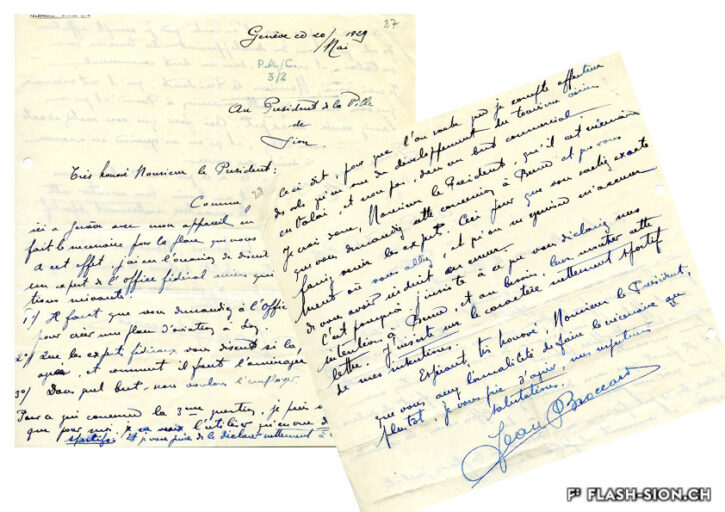 27
Genève ce 20/ Mai 1929
P.A./C.
3/2
Au Président de la Ville
de
Sion
Très honoré Monsieur le Président:
Comme
ici à Genève avec mon appareil
fait le nécessaire pour la place que nous
A cet effet, j'ai eu l'occasion de discuter
un expert de l'Office fédéral aérien qui
tions suivantes:
1°/ Il faut que vous demandiez à l'Office
pour créer une place d'aviation à Sion
2°/ Que les experts fédéraux vous disent si la
et comment il faut l'aménager
3°/ Dans quel but, nous voulons l'employer
Pour ce qui concerne la 3ème question, je
que pour moi, je ne veux l'utiliser qu'en vue
sportifs et je vous prie de le déclarer nettement à
28
Ceci dit, pour que l'on sache que je compte effectuer
des vols qu'en vue du développement du tourisme aérien
en Valais, et non pas, dans un but commercial.
Je crois donc, Monsieur le Président, qu'il est nécessaire
que vous demandiez cette concession à Berne et que vous
fassiez venir les experts. Ceci pour que vous sachiez exacte
ment où vous allez, et qu'on ne puisse m'accuser
de vous avoir induit en erreur.
C'est pourquoi, j'insiste à ce que vous déclariez mes
intentions à Berne, et au besoin, leur montrer cette
lettre. J'insiste sur le caractère nettement sportif
de mes intentions.
Espérant, très honoré, Monsieur le Président,
que vous aurez l'amabilité de faire le nécessaire au
plutôt, je vous prie d'agréer, mes
salutations.
Jean Broccard
FLASH-SION.CH